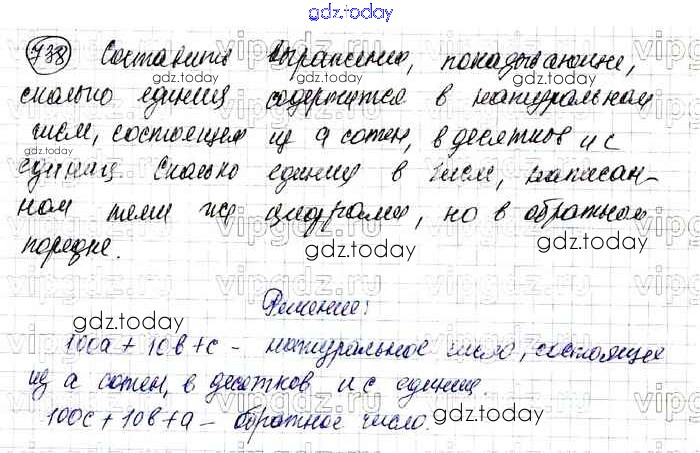 gdz.today
738 Составить выражение, показывающие,
gdz.today gdz.today
сколько единиц содержится в натуральном
числе, состоящем из a сотен, b десятков и c
gdz.today
единиц. Сколько единиц в числе, написан-
ном теми же цифрами, но в обратном
порядке.
gdz.today gdz.today
Решение:
gdz.today
100a + 10b + c - натуральное число, состоящее
из a сотен, b десятков и c единиц.
100c + 10b + a - обратное число.
gdz.today gdz.today